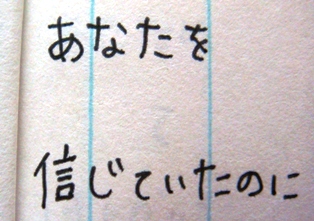 あなたを
信じていたのに